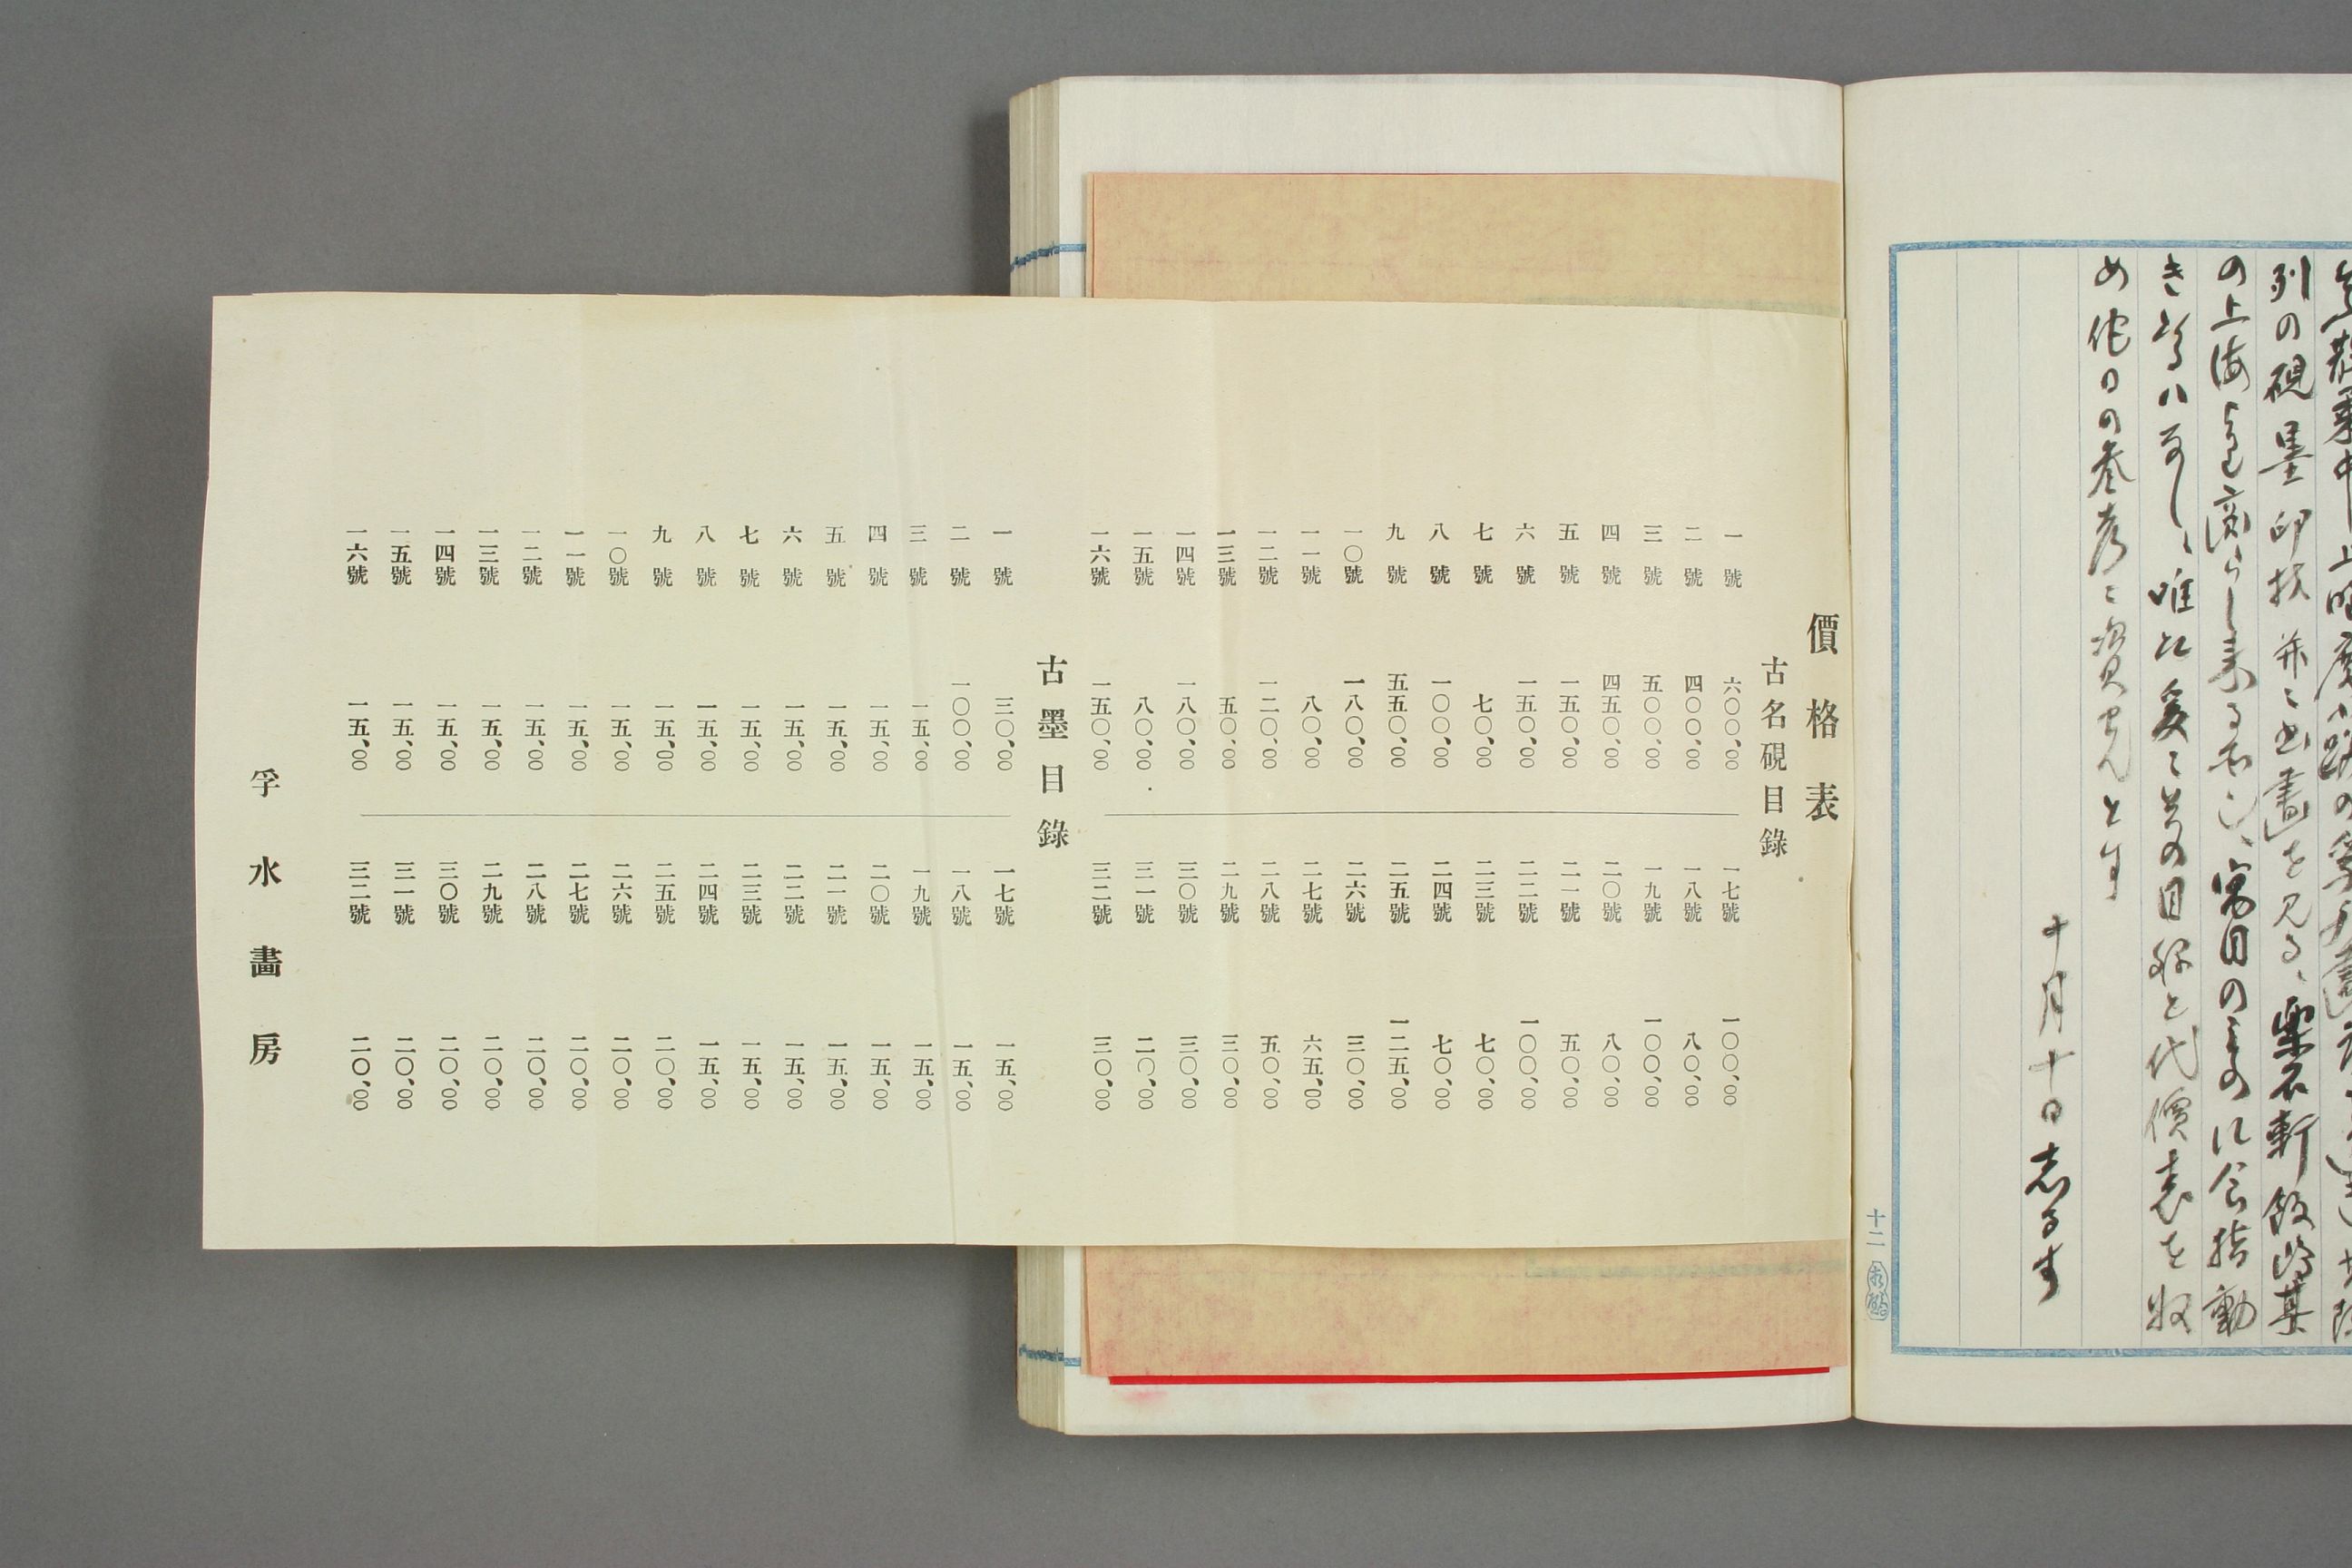 列の硯墨印材并ニ書畫を見る、樂石軒飯島某
の上海より齎らし来る者也、寓目のもの
め他日の参考ニ資せんとす
十月十日志るす
十二
價格表
古名硯目錄
一號 六〇〇、〇〇
二號 四〇〇、〇〇
三號 五〇〇、〇〇
四號 四五〇、〇〇
五號 一五〇、〇〇
六號 一五〇、〇〇
七號 七〇、〇〇
八號 一〇〇、〇〇
九號 五五〇、〇〇
一〇號 一八〇、〇〇
一一號 八〇、〇〇
一二號 一二〇、〇〇
一三號 五〇、〇〇
一四號 一八〇、〇〇
一五號 八〇、〇〇
一六號 一五〇、〇〇
一七號 一〇〇、〇〇
一八號 八〇、〇〇
一九號 一〇〇、〇〇
二〇號 八〇、〇〇
二一號 五〇、〇〇
二二號 一〇〇、〇〇
二三號 七〇、〇〇
二四號 七〇、〇〇
二五號 一二五、〇〇
二六號 三〇、〇〇
二七號 六五、〇〇
二八號 五〇、〇〇
二九號 三〇、〇〇
三〇號 三〇、〇〇
三一號 二〇、〇〇
三二號 三〇、〇〇
古墨目錄
一號 三〇、〇〇
二號 一〇〇、〇〇
三號 一五、〇〇
四號 一五、〇〇
五號 一五、〇〇
六號 一五、〇〇
七號 一五、〇〇
八號 一五、〇〇
九號 一五、〇〇
一〇號 一五、〇〇
一一號 一五、〇〇
一二號 一五、〇〇
一三號 一五、〇〇
一四號 一五、〇〇
一五號 一五、〇〇
一六號 一五、〇〇
一七號 一五、〇〇
一八號 一五、〇〇
一九號 一五、〇〇
二〇號 一五、〇〇
二一號 一五、〇〇
二二號 一五、〇〇
二三號 一五、〇〇
二四號 一五、〇〇
二五號 二〇、〇〇
二六號 二〇、〇〇
二七號 二〇、〇〇
二八號 二〇、〇〇
二九號 二〇、〇〇
三〇號 二〇、〇〇
三一號 二〇、〇〇
三二號 二〇、〇〇
孚水畵房